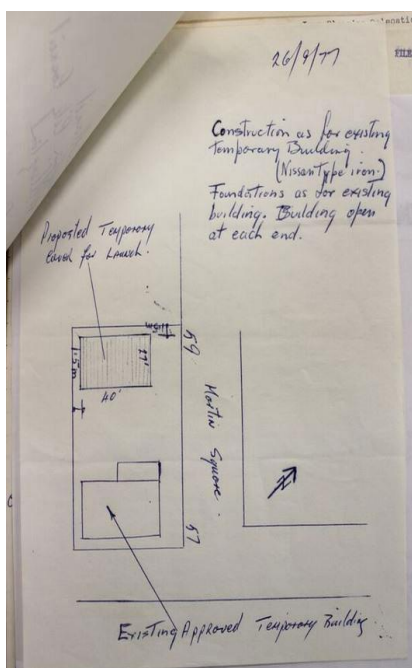 26/9/77
FILE
Construction as for existing
temporary Building.
(Nissan Type iron.)
Foundations as for existing
building. Building open
at each end.
Proposed Temporary
Cover for Launch.
1.5m
1.5m
27'
40'
59
Martin Square.
57
Existing Approved Temporary Building.